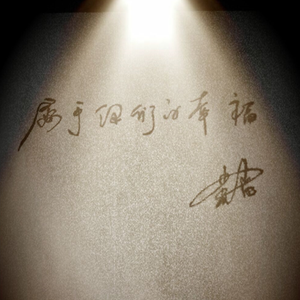 属于你们的幸福